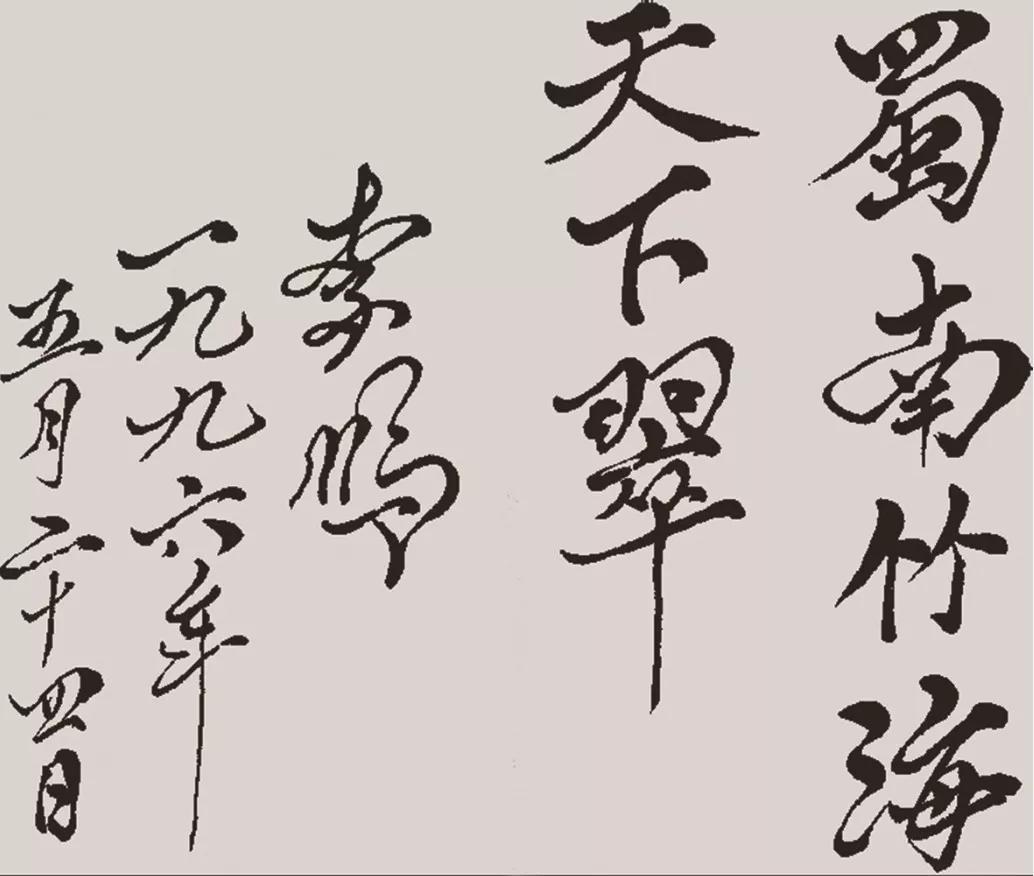 蜀南竹海
天下翠
李鹏
一九九六年
五月二十四日